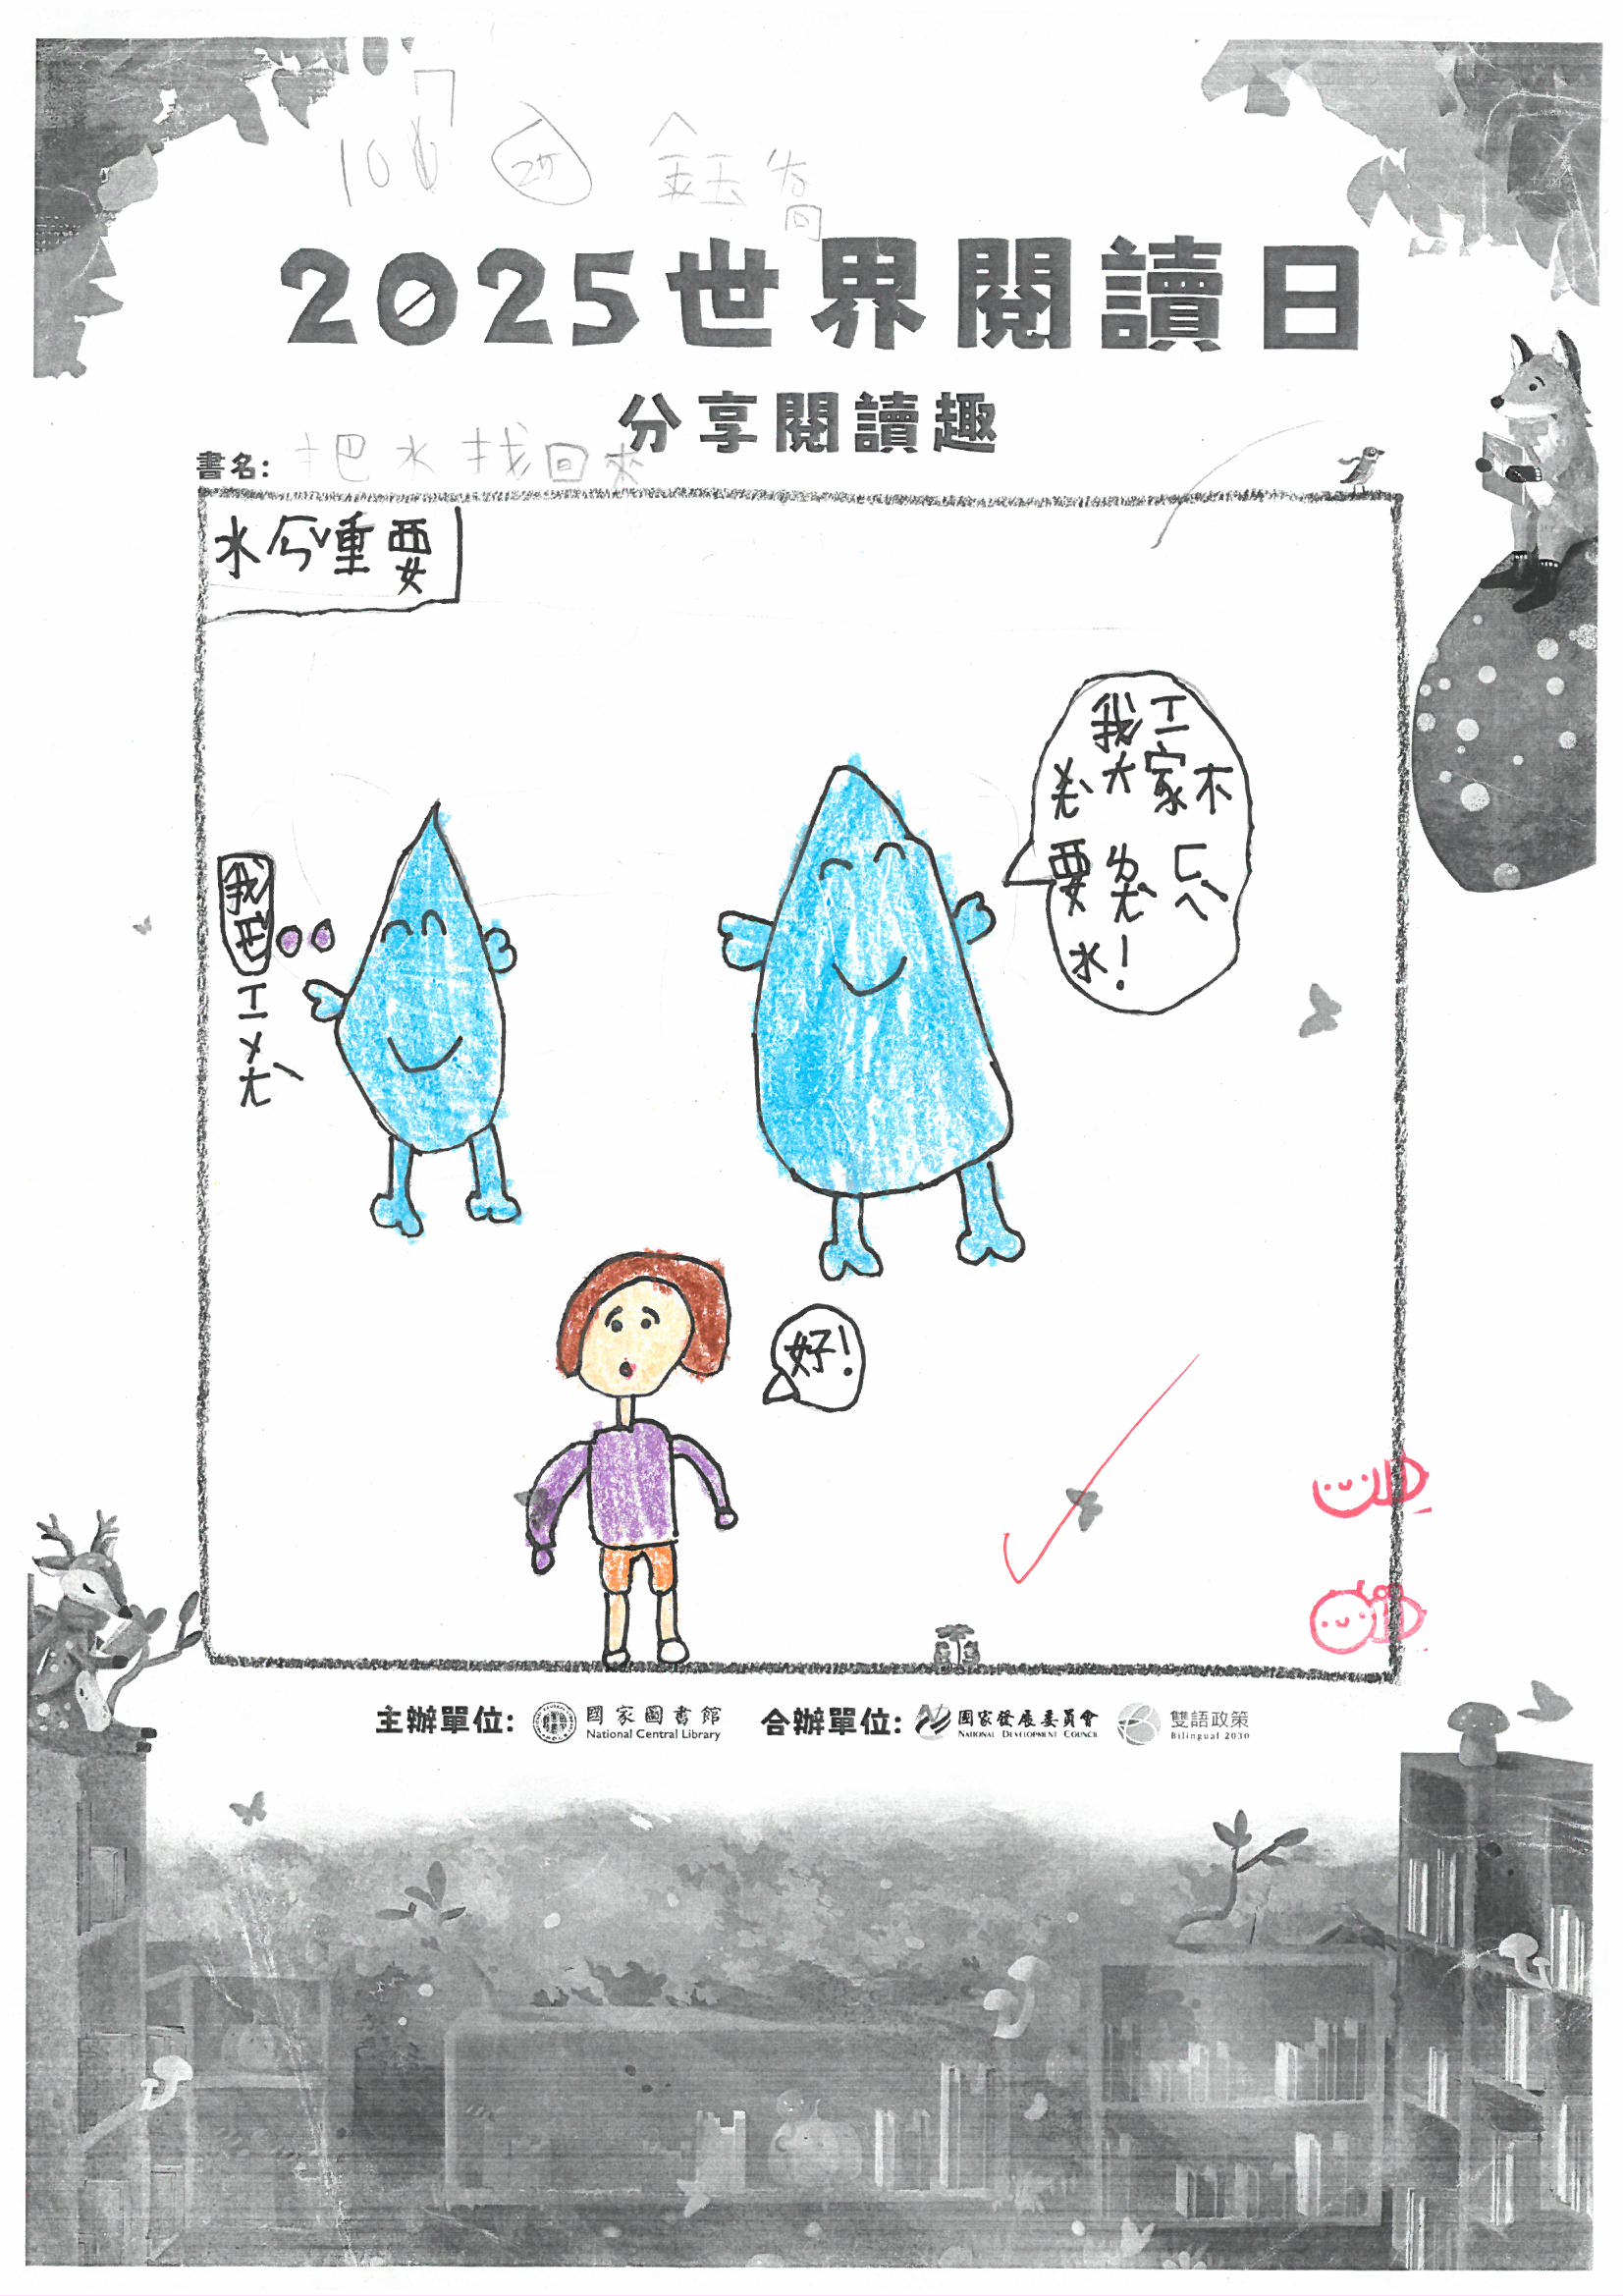 107 25 鈺喬
2025世界閱讀日
分享閱讀趣
書名: 把水找回來
水ㄣˇ重要
我ㄒ
ㄨㄤˋ大家不
要ㄌㄤˋㄈㄟˋ
水!
我也
ㄒㄨㄤˋ
好!
主辦單位: 國家圖書館 合辦單位: 國家發展委員會 雙語政策
National Central Library NATIONAL DEVELOPMENT COUNCIL Bilingual 2030